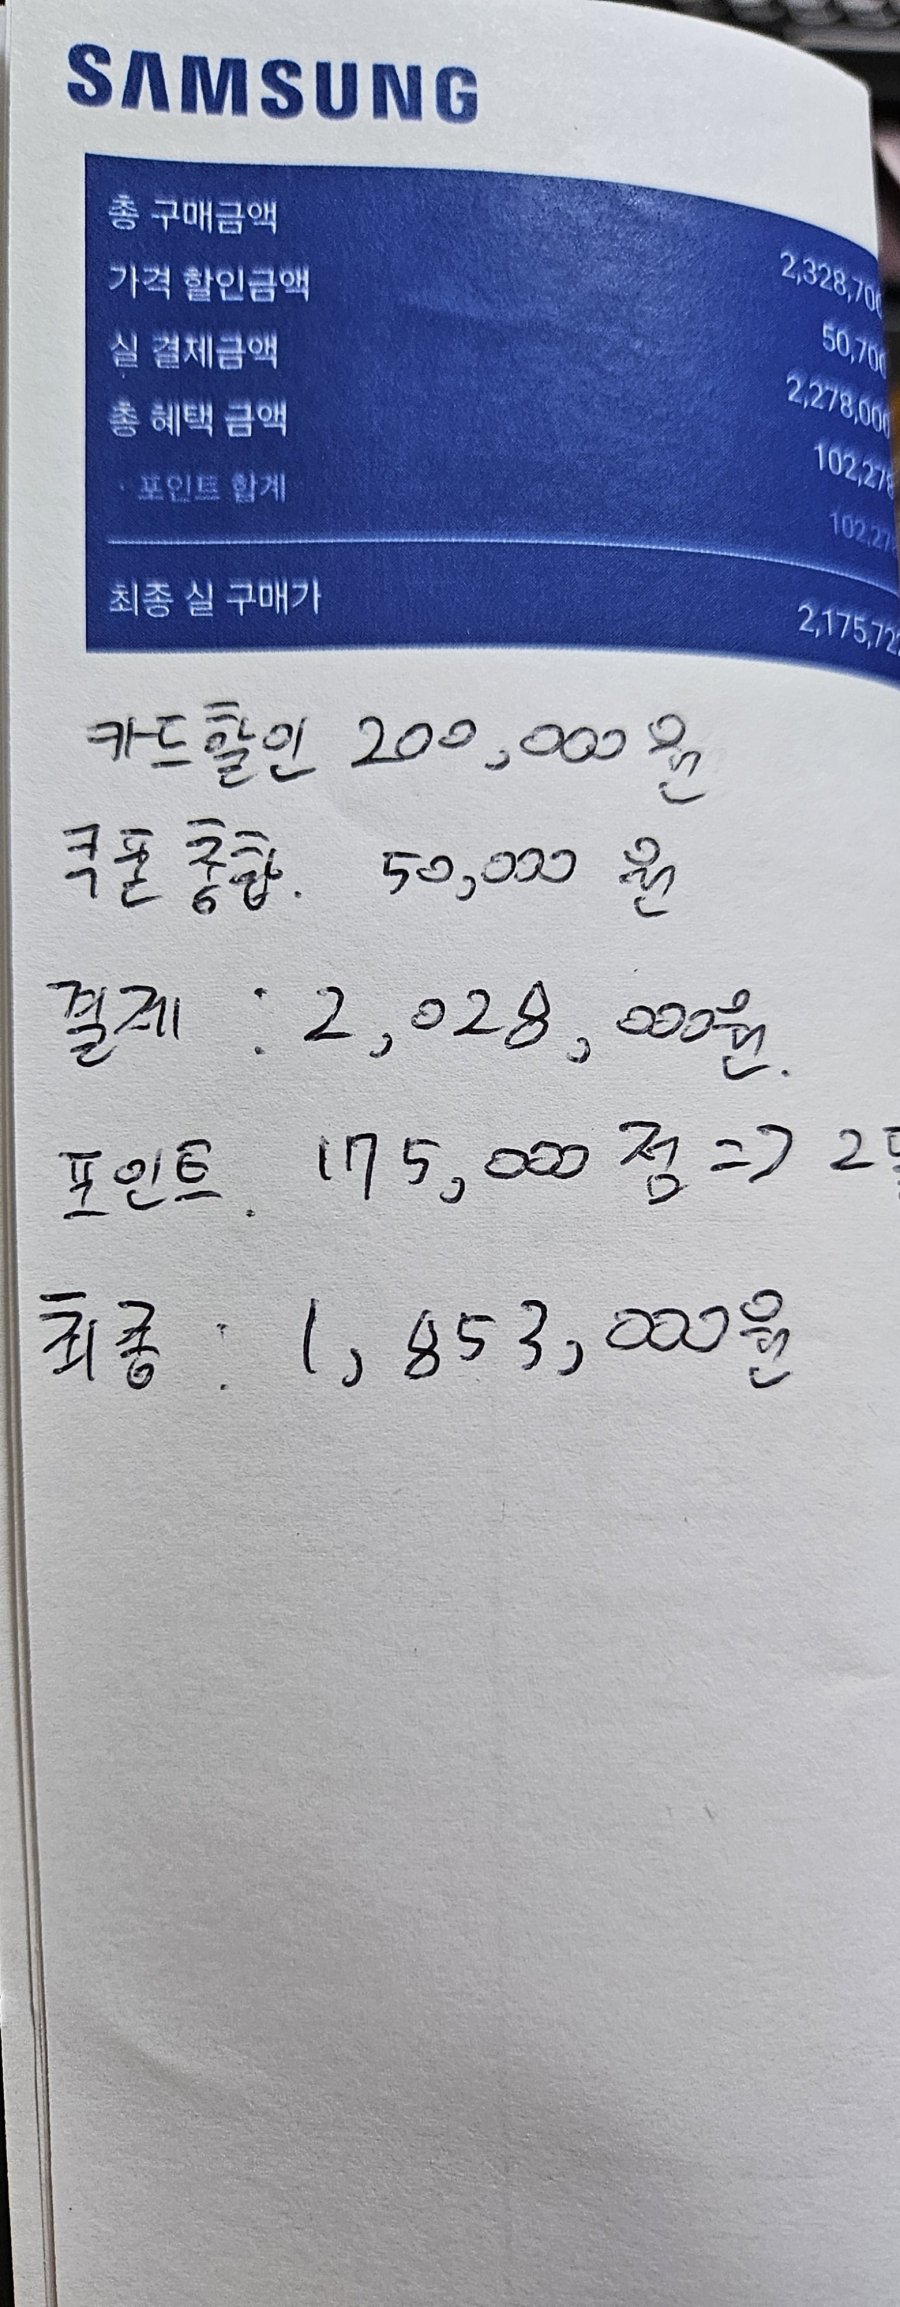 SAMSUNG
총 구매금액 2,328,700
가격 할인금액 50,700
실 결제금액 2,278,000
총 혜택 금액 102,278
· 포인트 합계 102,27
최종 실 구매가 2,175,722
카드할인 200,000원
쿠폰 종합. 50,000 원
결제 : 2,028,000원.
포인트. 175,000 점 => 2
최종 : 1,853,000원